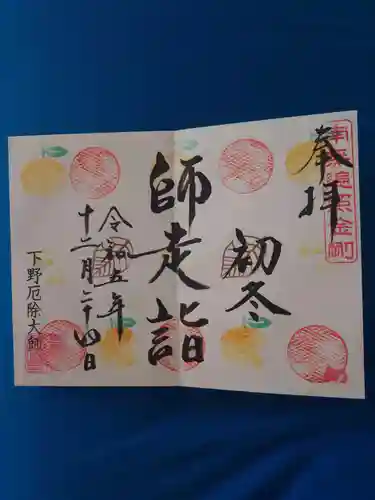 奉拝
南無遍照金剛
初冬
師走詣
令和五年
十二月二十四日
下野厄除大師